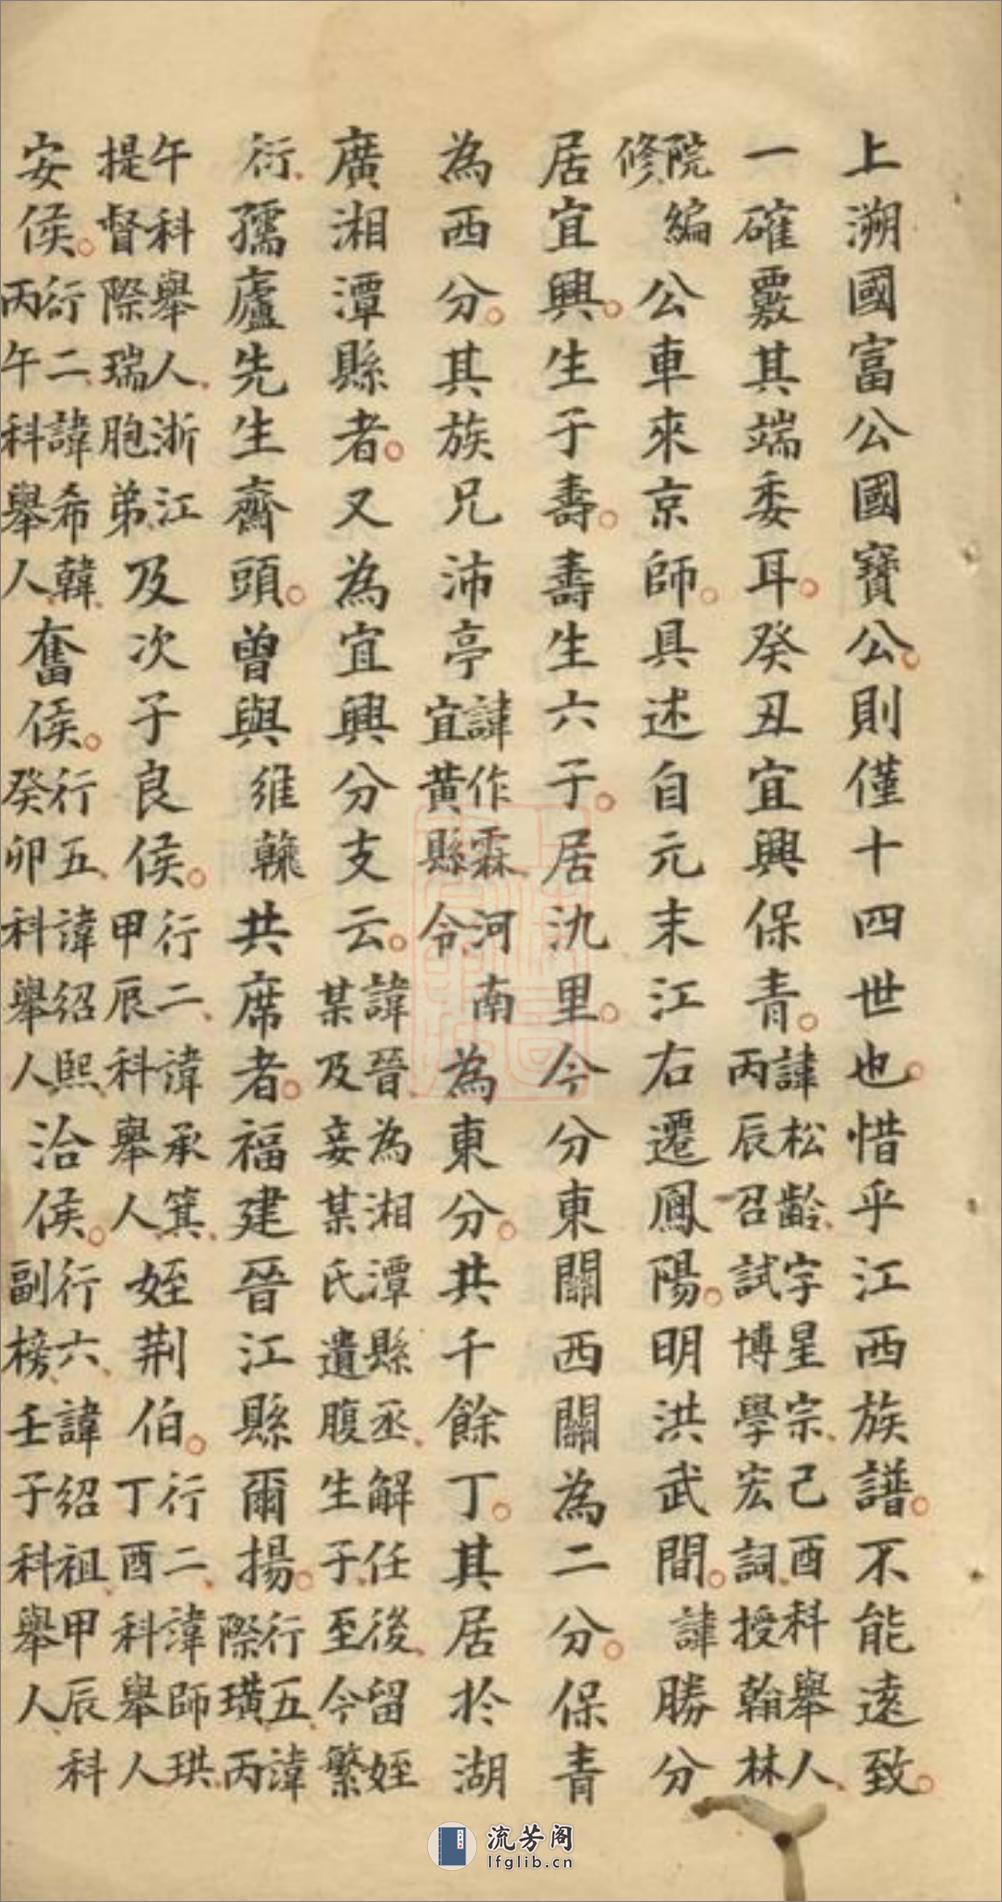 上溯國富公國寶公則僅十四世也惜乎江西族譜不能遠致
一確覈其端委耳癸丑宜興保青諱松齡字星宗己酉科舉人丙辰召試博學宏詞授翰林
院編修公車來京師具述自元末江右遷鳳陽明洪武間諱勝分
居宜興生子壽壽生六子居氿里今分東關西關為二分保青
為西分其族兄沛亭諱作霖河南宜黃縣令為東分共千餘丁其居於湖
廣湘潭縣者又為宜興分支云諱晉為湘潭縣丞解任後留姪某及妾某氏遺腹生子至今繁
衍孺廬先生齋頭曾與維𩋾共席者福建晉江縣爾揚行五諱際璜丙
午科舉人浙江提督際瑞胞弟及次子良侯行二諱承箕甲辰科舉人姪荆伯行二諱師珙丁酉科舉人
安侯行二諱希韓丙午科舉人奮侯行五諱紹熙癸卯科舉人洽侯行六諱紹祖甲辰科副榜壬子科舉人
流芳阁
lfglib.cn